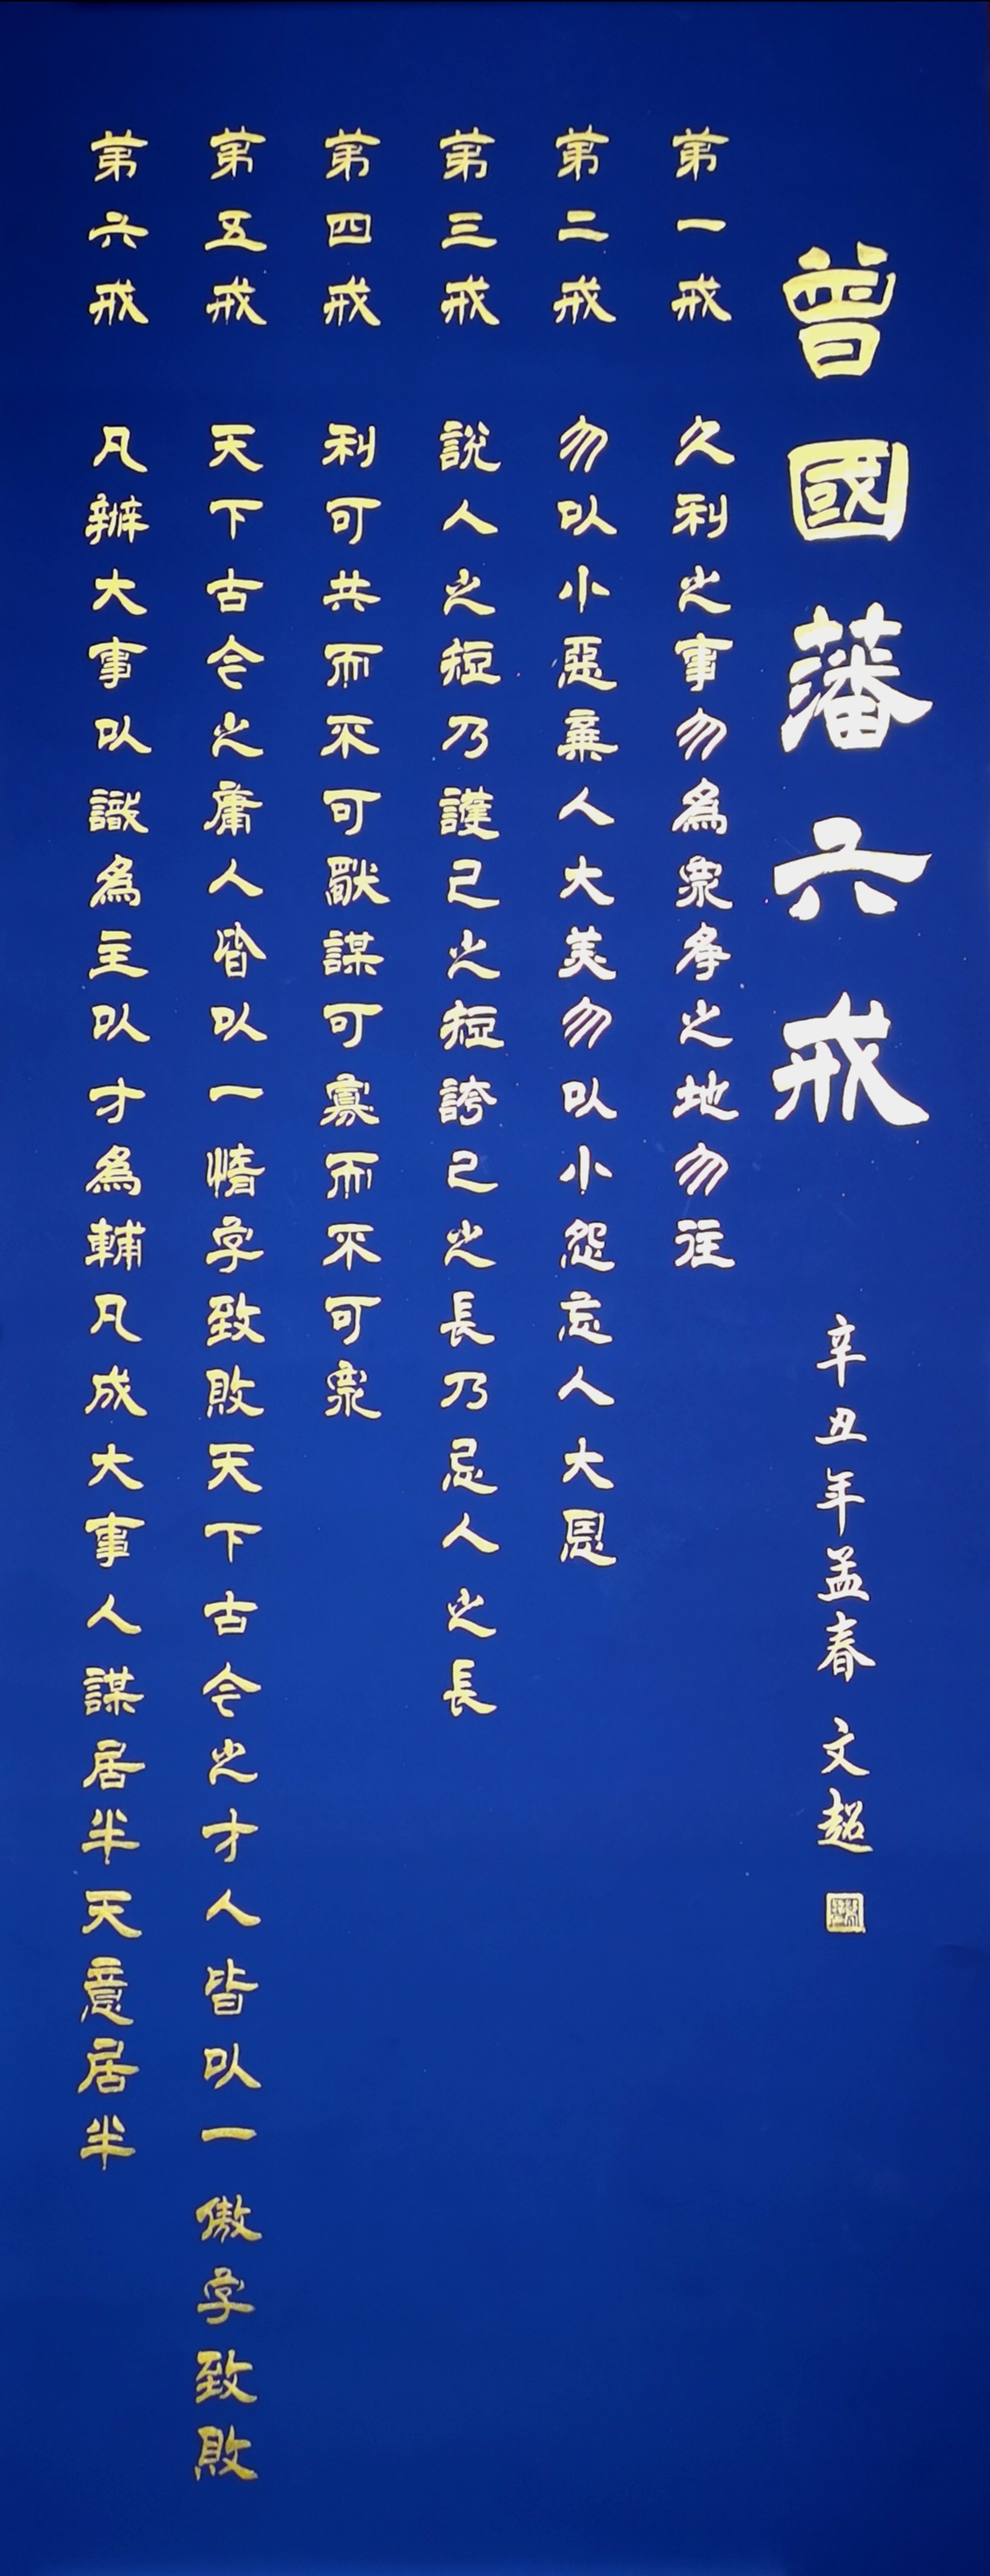 曾國藩六戒
辛丑年孟春 文超
第一戒 久利之事勿為衆爭之地勿往
第二戒 勿以小惡棄人大美勿以小怨忘人大恩
第三戒 說人之短乃護己之短誇己之長乃忌人之長
第四戒 利可共而不可獸謀可寡而不可衆
第五戒 天下古今之庸人皆以一惰字致敗天下古今之才人皆以一傲字致敗
第六戒 凡辦大事以識為主以才為輔凡成大事人謀居半天意居半